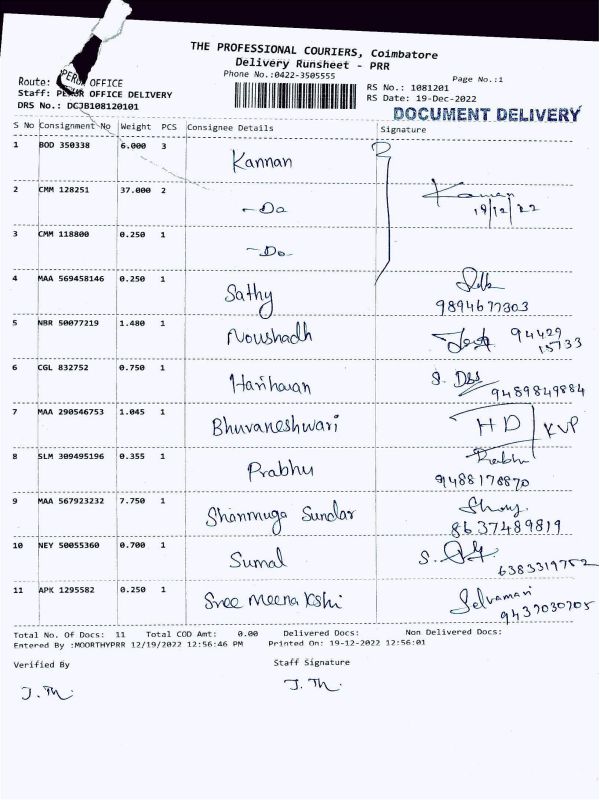 THE PROFESSIONAL COURIERS, Coimbatore
Delivery Runsheet - PRR
Phone No.:0422-3505555
Page No.:1
Route: PERUR OFFICE
RS No.: 1081201
Staff: PERUR OFFICE DELIVERY
RS Date: 19-Dec-2022
DRS No.: DCJB108120101
DOCUMENT DELIVERY
S No Consignment No Weight PCS Consignee Details Signature
1 BOD 350338 6.000 3 Kannan
2 CMM 128251 37.000 2 - Do
19/12/22
3 CMM 118800 0.250 1 - Do
4 MAA 569458146 0.250 1 Sathy
9894677303
5 NBR 50077219 1.480 1 Noushadh 94429
15733
6 CGL 832752 0.750 1 Hariharan S.
9489849884
7 MAA 290546753 1.045 1 Bhuvaneshwari HD KVP
8 SLM 309495196 0.355 1 Prabhu Prabhu
9488176870
9 MAA 567923232 7.750 1 Shanmuga Sundar
8637489819
10 NEY 50055360 0.700 1 Sumal S.
6383319752
11 APK 1295582 0.250 1 Sree Meenakshi Selvamani
9437030705
Total No. Of Docs: 11 Total COD Amt: 0.00 Delivered Docs: Non Delivered Docs:
Entered By :MOORTHYPRR 12/19/2022 12:56:46 PM Printed On: 19-12-2022 12:56:01
Verified By Staff Signature
J. Th. J. Th.